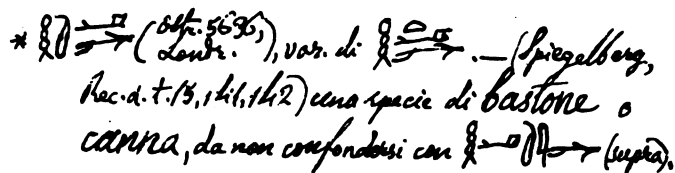 * (ostr. 5696,
Londr.), var. di . — (Spiegelberg,
Rec. d. t. 15, 141, 142) una specie di bastone o
canna, da non confondersi con (supra).